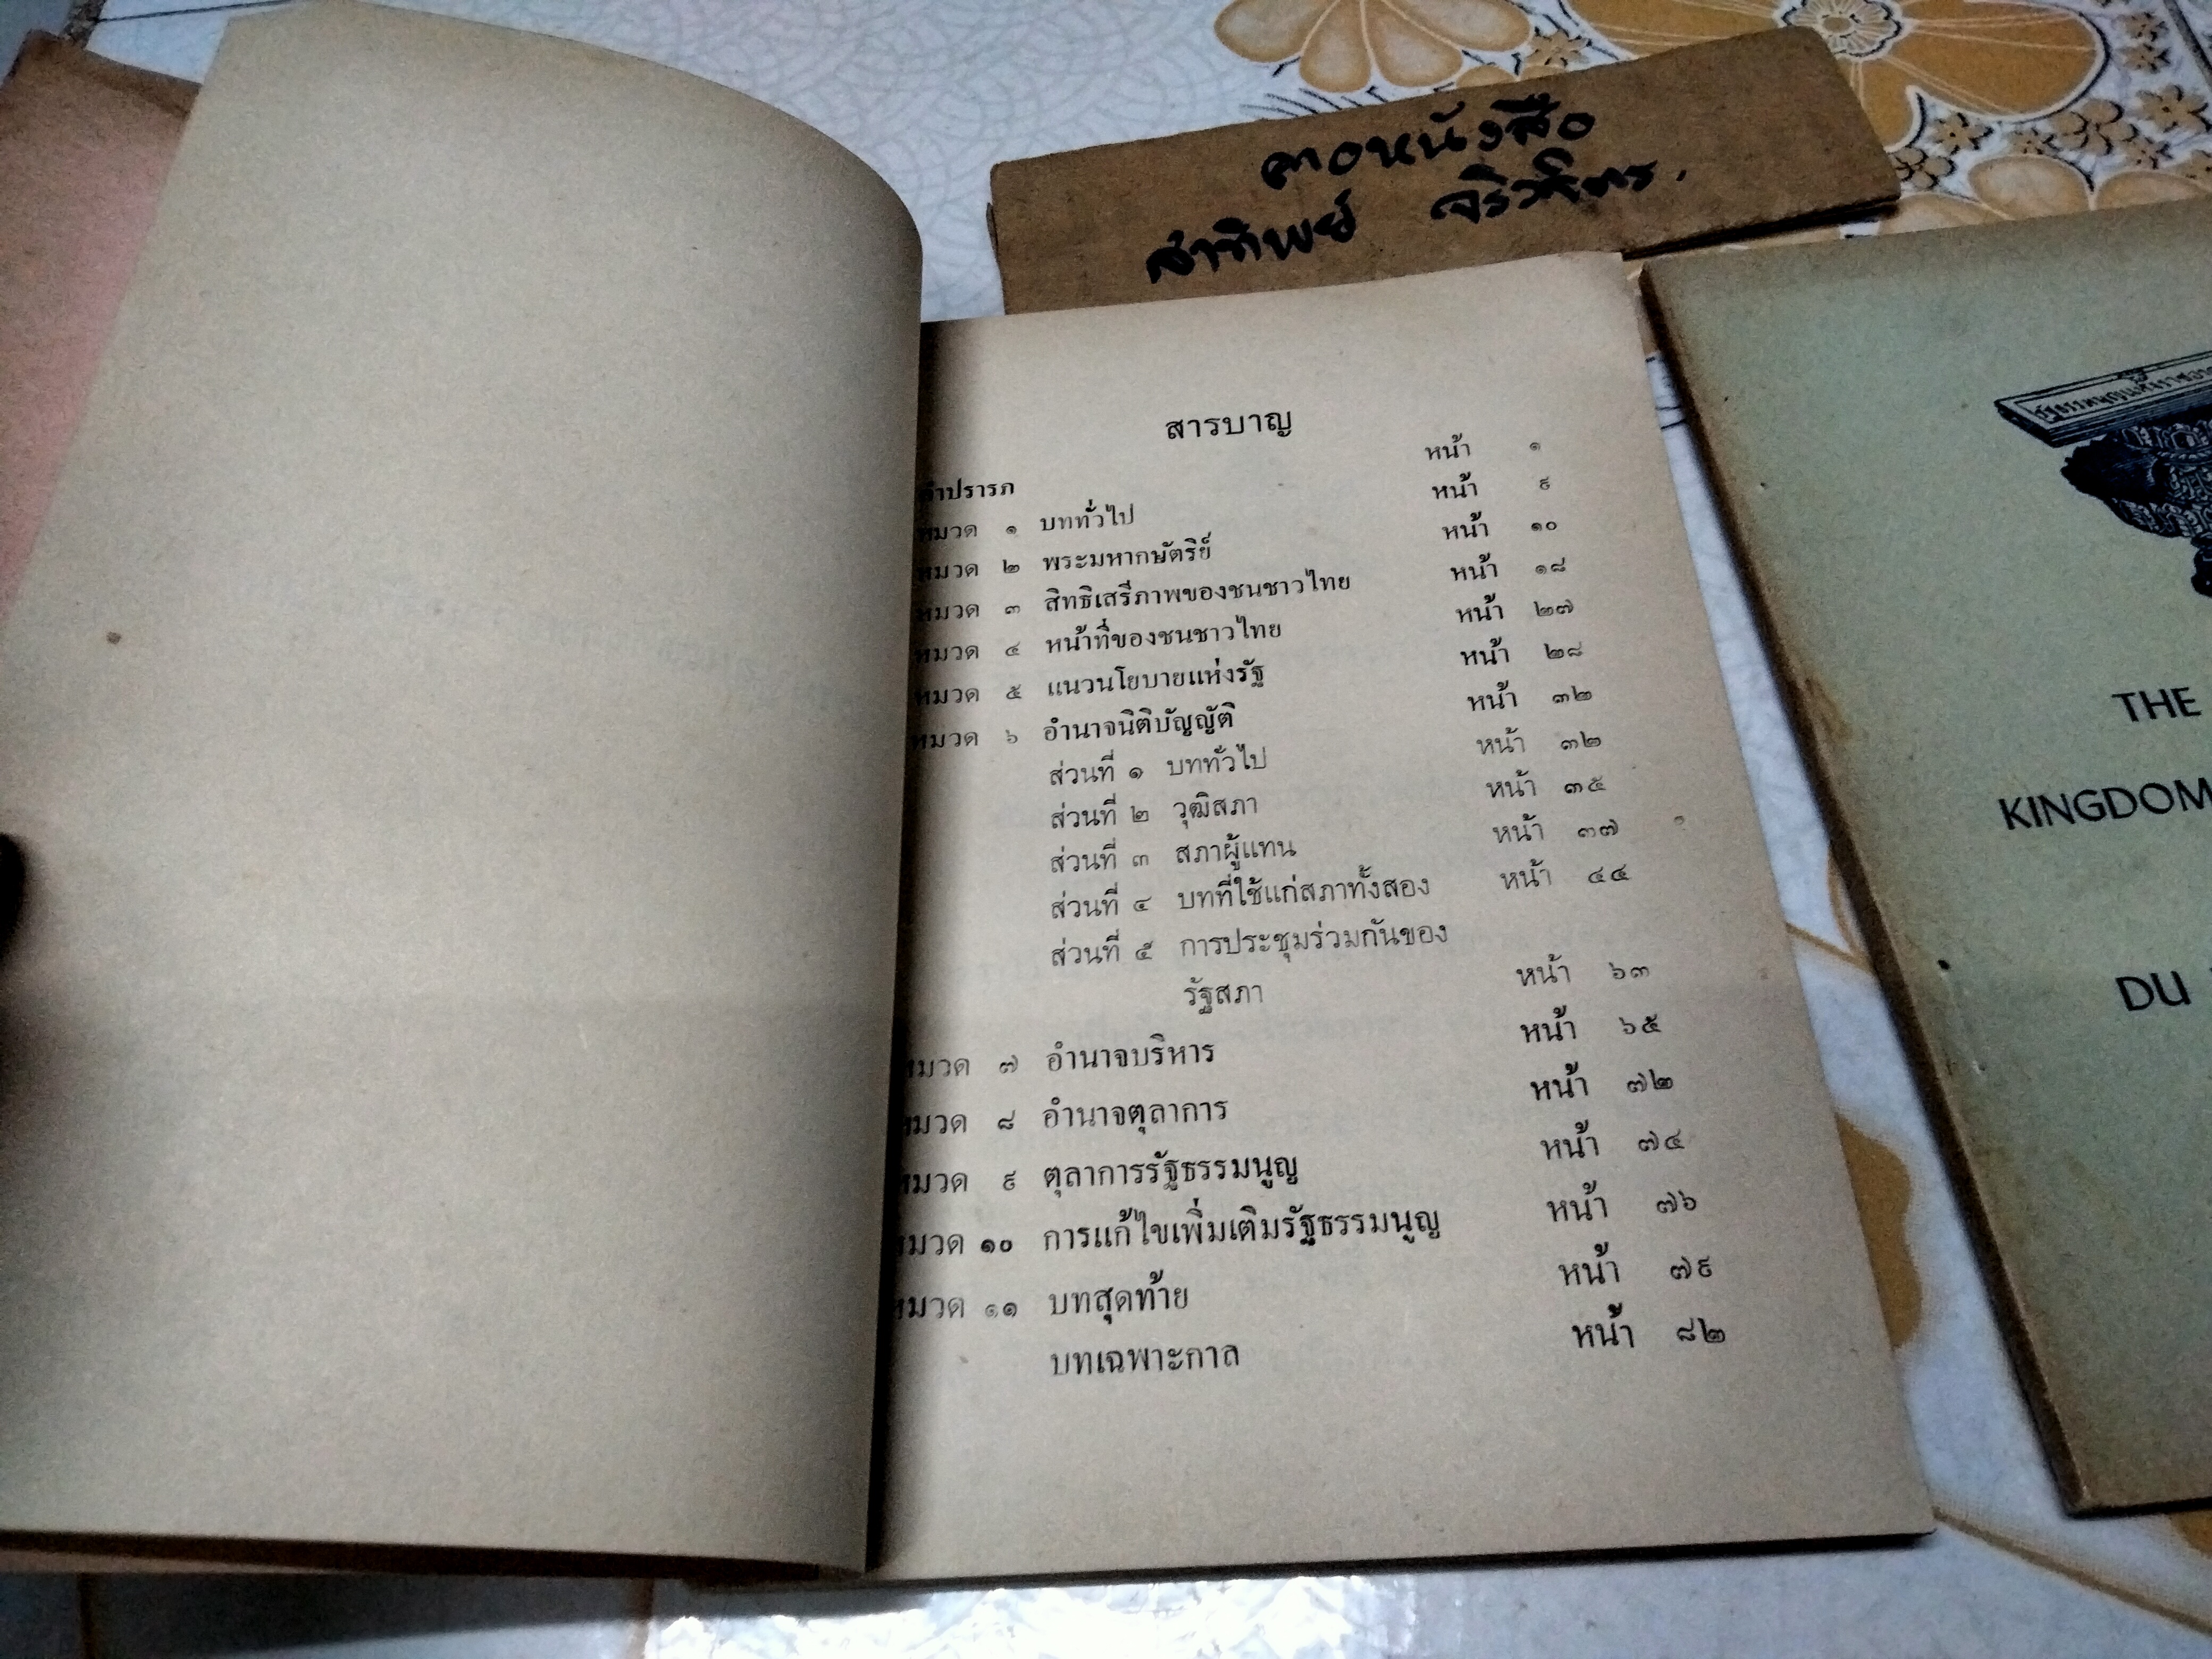 คอหนังสือ
สาทิพย์ จริวจิตร.
สารบาญ
คำปรารภ หน้า ๑
หมวด ๑ บททั่วไป หน้า ๙
หมวด ๒ พระมหากษัตริย์ หน้า ๑๐
หมวด ๓ สิทธิเสรีภาพของชนชาวไทย หน้า ๑๘
หมวด ๔ หน้าที่ของชนชาวไทย หน้า ๒๗
หมวด ๕ แนวนโยบายแห่งรัฐ หน้า ๒๘
หมวด ๖ อำนาจนิติบัญญัติ หน้า ๓๒
ส่วนที่ ๑ บททั่วไป หน้า ๓๒
ส่วนที่ ๒ วุฒิสภา หน้า ๓๕
ส่วนที่ ๓ สภาผู้แทน หน้า ๓๗
ส่วนที่ ๔ บทที่ใช้แก่สภาทั้งสอง หน้า ๔๔
ส่วนที่ ๕ การประชุมร่วมกันของ
รัฐสภา หน้า ๖๓
หมวด ๗ อำนาจบริหาร หน้า ๖๕
หมวด ๘ อำนาจตุลาการ หน้า ๗๒
หมวด ๙ ตุลาการรัฐธรรมนูญ หน้า ๗๔
หมวด ๑๐ การแก้ไขเพิ่มเติมรัฐธรรมนูญ หน้า ๗๖
หมวด ๑๑ บทสุดท้าย หน้า ๗๙
บทเฉพาะกาล หน้า ๘๒
THE
KINGDOM
DU